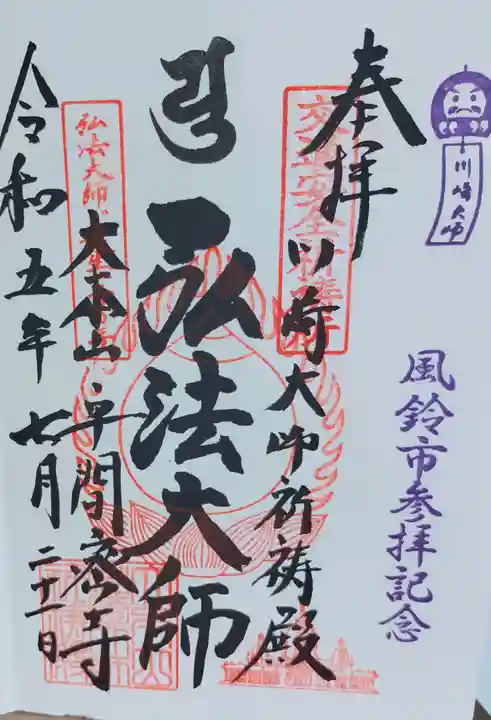 川崎大師
風鈴市参拝記念
奉拝
交通安全祈祷殿
川崎大師祈祷殿
弘法大師
弘法大師
大本山・平間密寺
令和五年七月二十一日